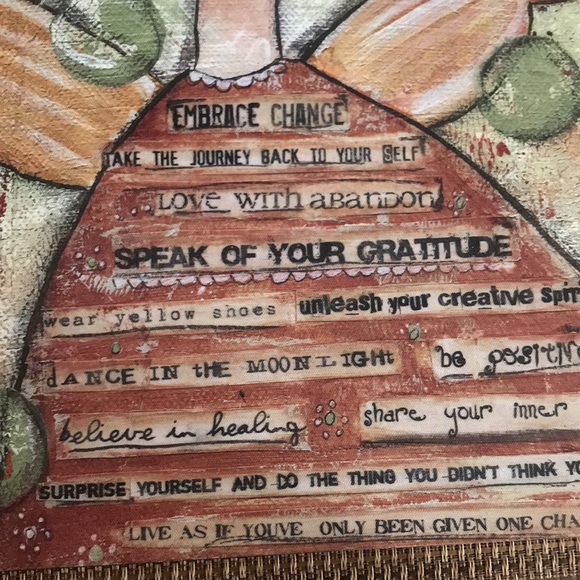 EMBRACE CHANGE
TAKE THE JOURNEY BACK TO YOUR SELF
LOVE WITH ABANDON
SPEAK OF YOUR GRATITUDE
wear yellow shoes unleash your creative
DANCE IN tHE MOONLIGHt be
believe in healing share your inner
SURPRISE YOURSELF AND DO THE THING YOU DIDN'T THINK
LIVE AS IF YOU'VE ONLY BEEN GIVEN ONE